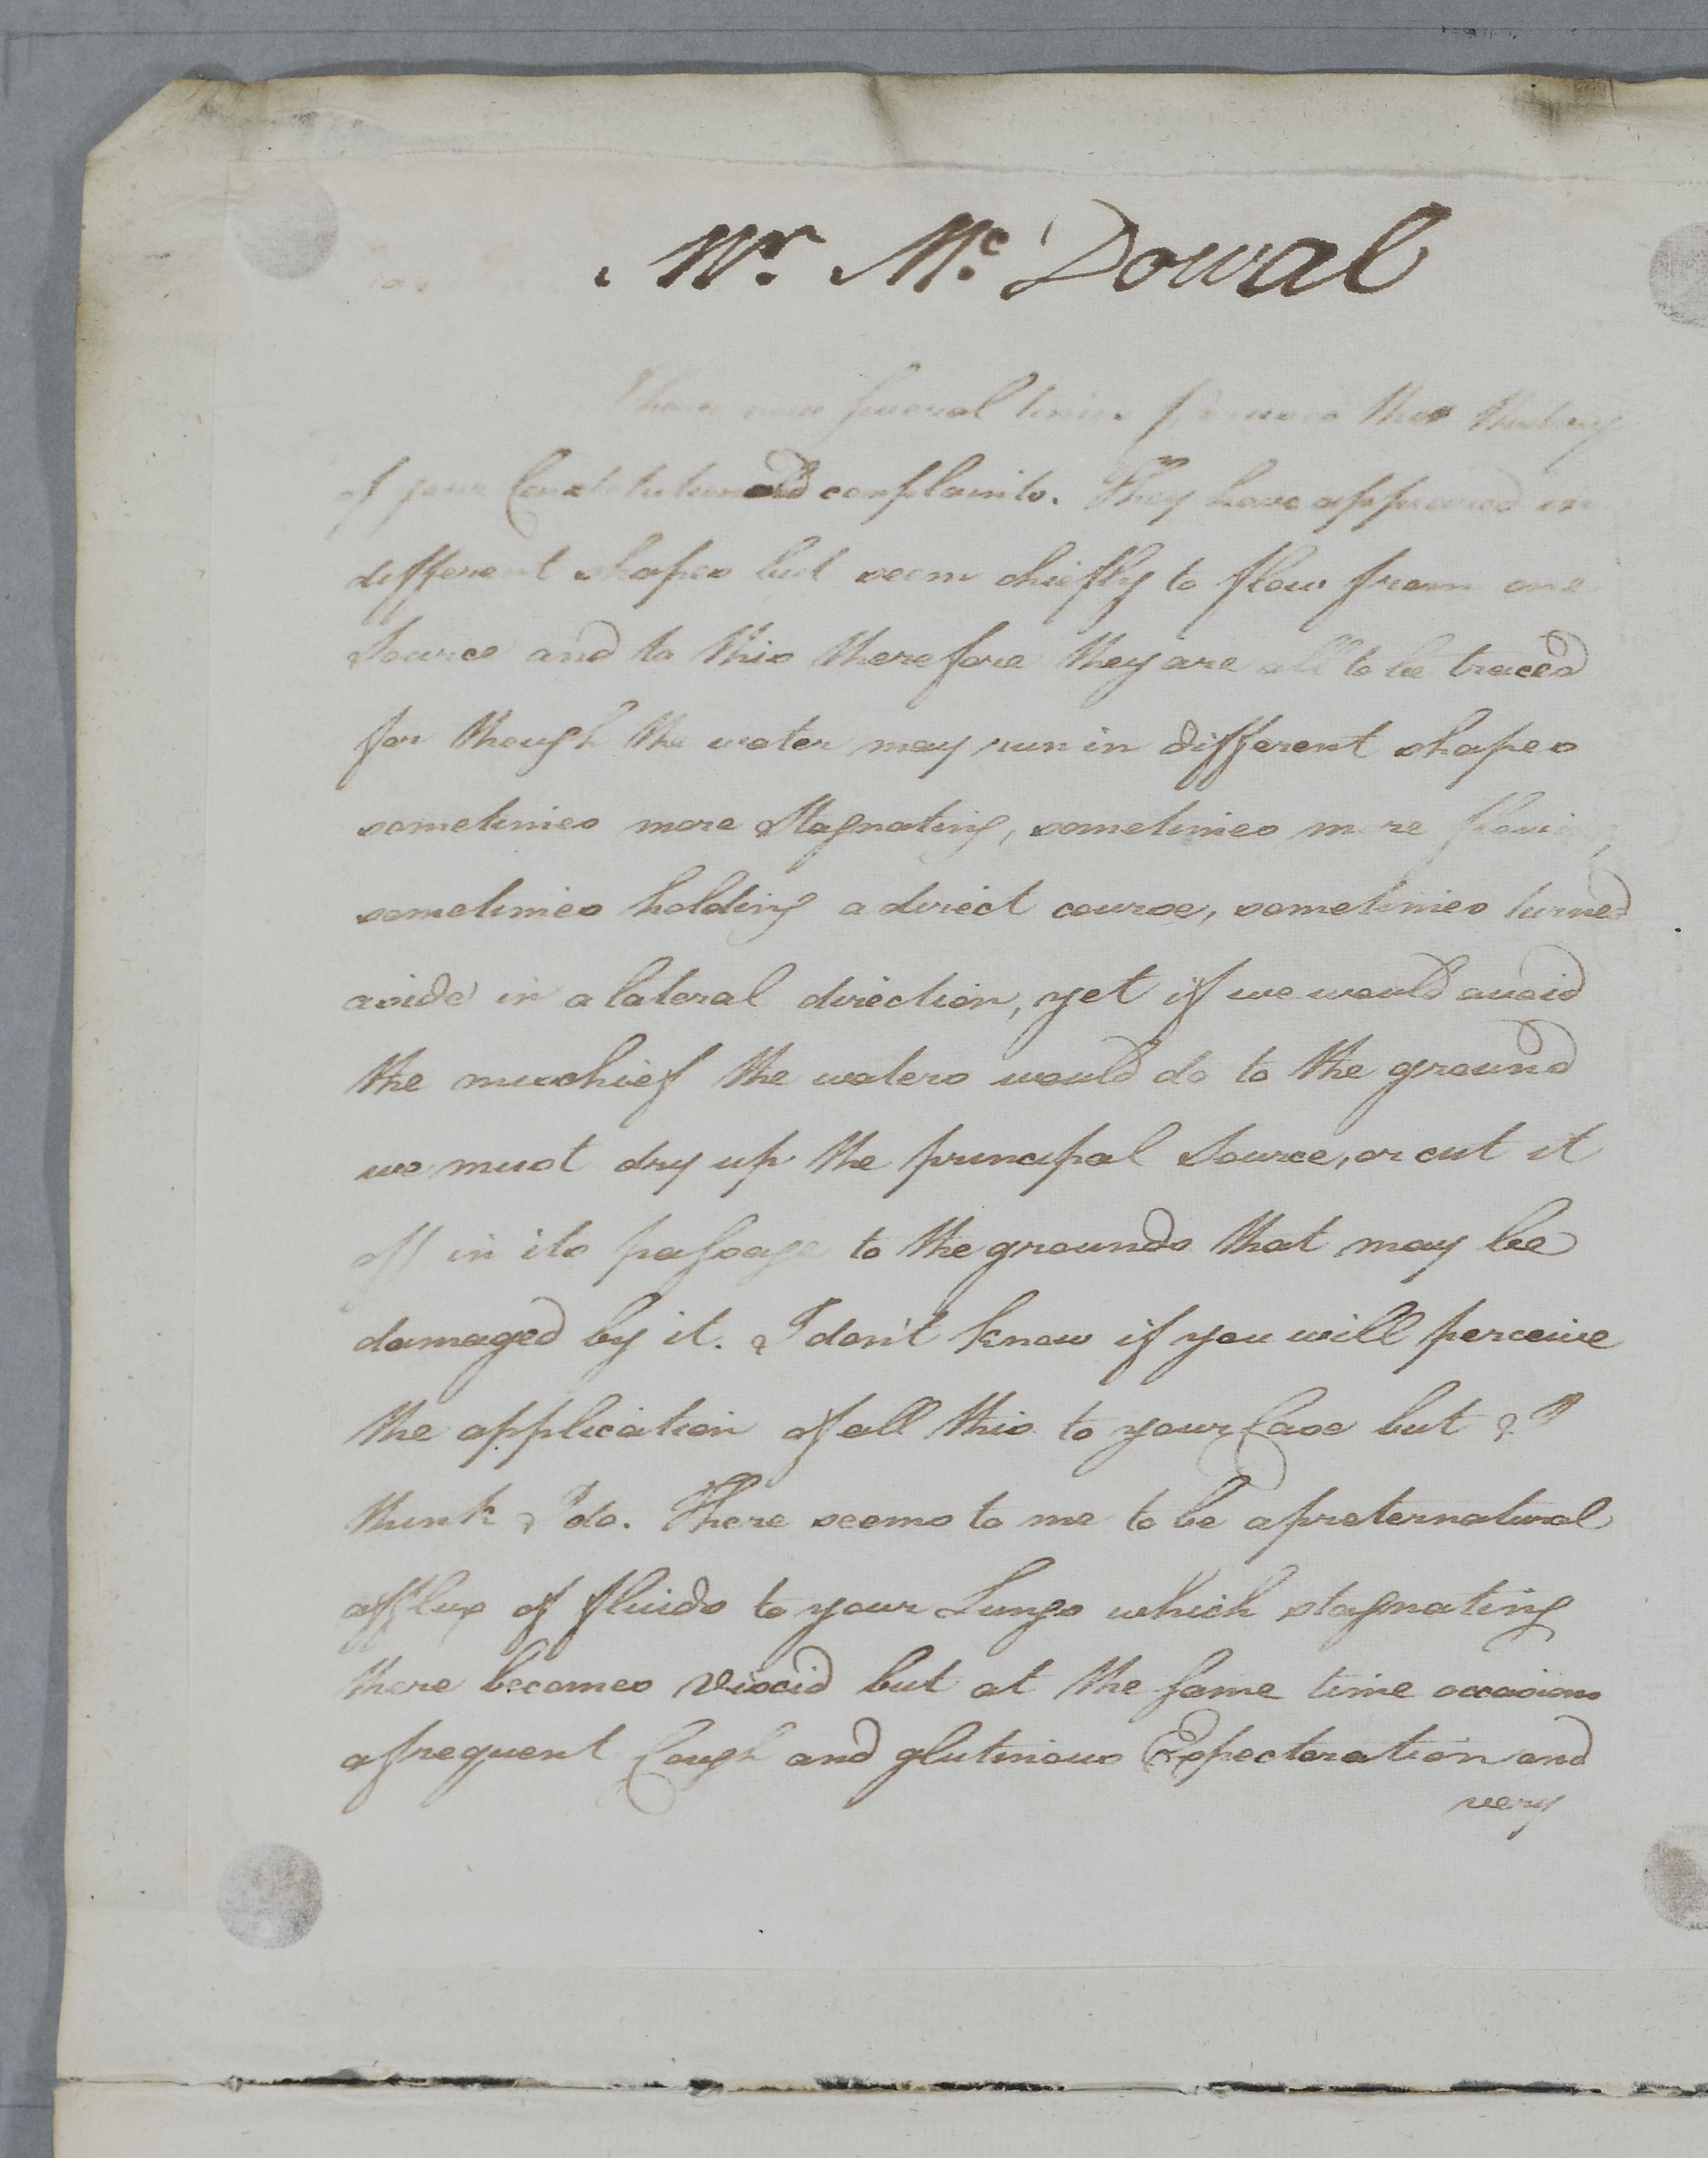 Mr. Mc. Dowal
I have now several times perused the History
of your Constitution and complaints. They have appeared in
different shapes but seem chiefly to flow from one
Source and to this therefore they are all to be traced
for though the water may run in different shapes
sometimes more Stagnating, sometimes more flowing,
sometimes holding a direct course, sometimes turned
aside in a lateral direction, yet if we would avoid
the mischief the waters would do to the ground
we must dry up the principal Source, or cut it
off in its passage to the grounds that may be
damaged by it. I don't know if you will perceive
the application of all this to your Case but I
think I do. There seems to me to be a preternatural
afflux of fluids to your Lungs which stagnating
there becomes Viscid but at the same time occasions
a frequent Cough and glutinous Expectoration and
very